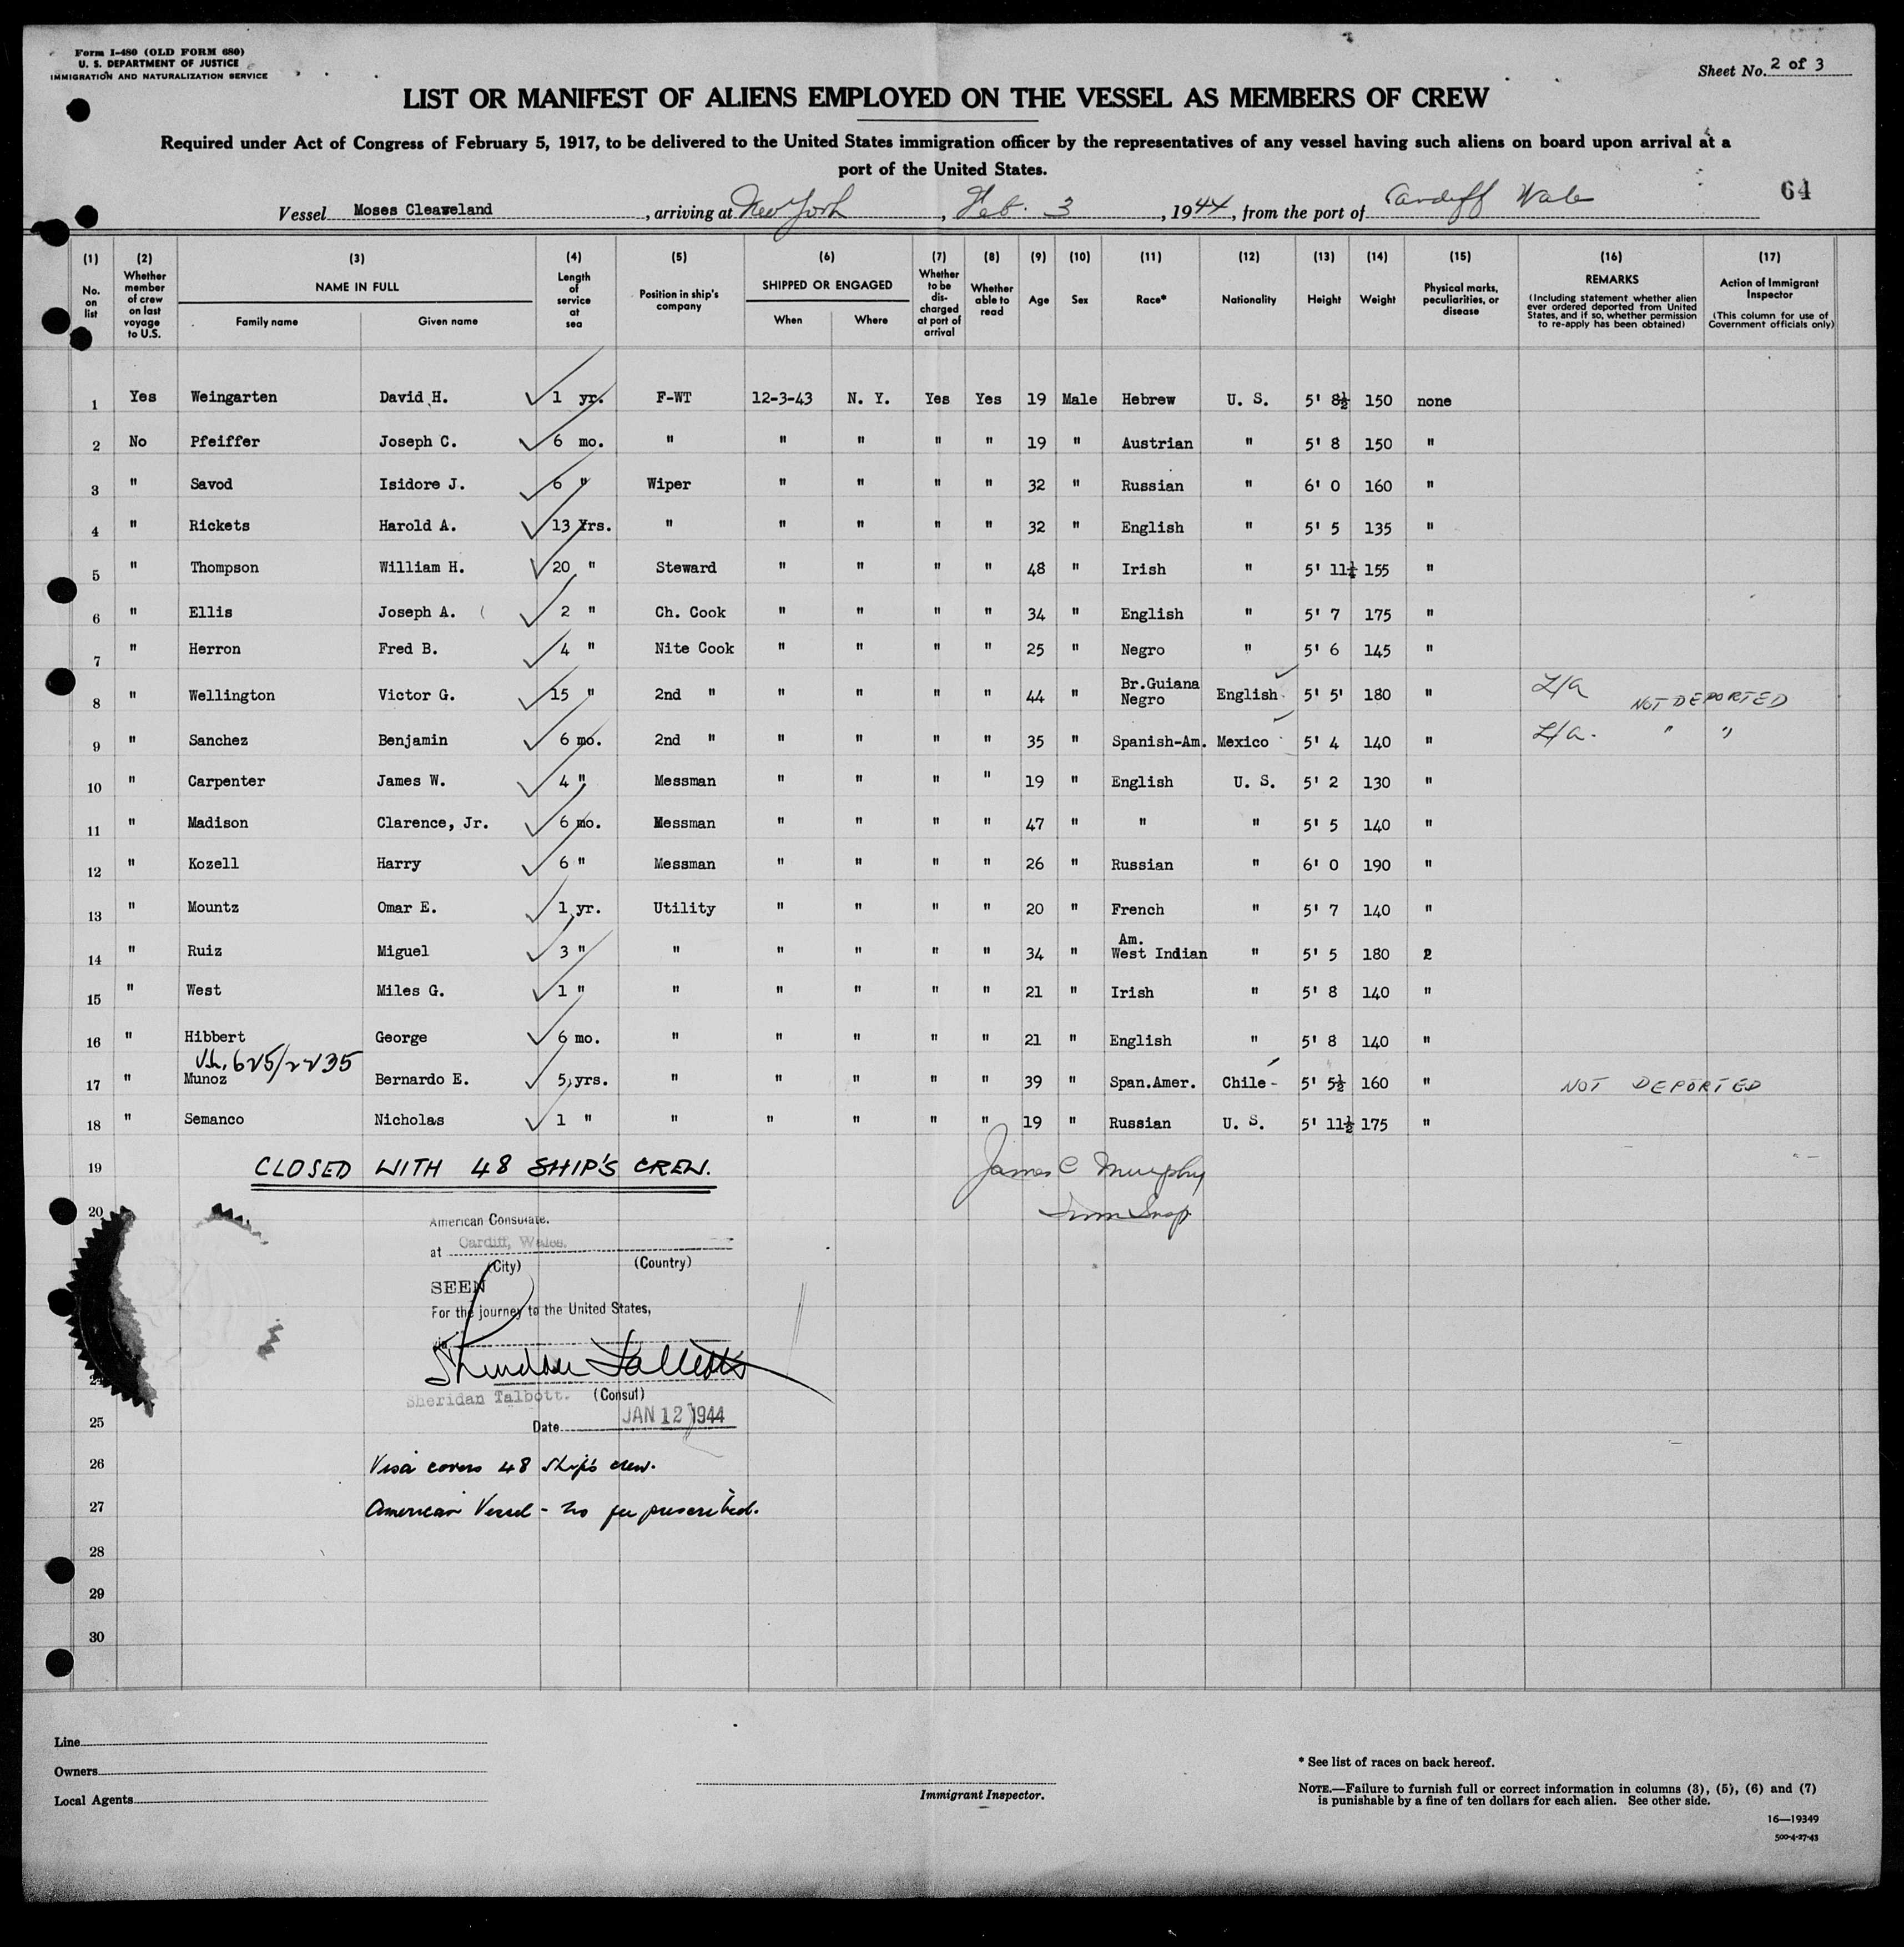 Form I-480 (OLD FORM 680)
U. S. DEPARTMENT OF JUSTICE
IMMIGRATION AND NATURALIZATION SERVICE
Sheet No. 2 of 3
LIST OR MANIFEST OF ALIENS EMPLOYED ON THE VESSEL AS MEMBERS OF CREW
Required under Act of Congress of February 5, 1917, to be delivered to the United States immigration officer by the representatives of any vessel having such aliens on board upon arrival at a
port of the United States.
64
Vessel Moses Cleaveland, arriving at New York, Feb. 3, 1944, from the port of Cardiff Wales
(1) No. on list (2) Whether member of crew on last voyage to U.S. (3) NAME IN FULL Family name Given name (4) Length of service at sea (5) Position in ship's company (6) SHIPPED OR ENGAGED When Where (7) Whether to be discharged at port of arrival (8) Whether able to read (9) Age (10) Sex (11) Race* (12) Nationality (13) Height (14) Weight (15) Physical marks, peculiarities, or disease (16) REMARKS (Including statement whether alien ever ordered deported from United States, and if so, whether permission to re-apply has been obtained) (17) Action of Immigrant Inspector (This column for use of Government officials only)
1 Yes Weingarten David H. 1 yr. F-WT 12-3-43 N. Y. Yes Yes 19 Male Hebrew U. S. 5' 8½ 150 none
2 No Pfeiffer Joseph C. 6 mo. " " " " " 19 " Austrian " 5' 8 150 "
3 " Savod Isidore J. 6 " Wiper " " " " 32 " Russian " 6' 0 160 "
4 " Rickets Harold A. 13 Yrs. " " " " " 32 " English " 5' 5 135 "
5 " Thompson William H. 20 " Steward " " " " 48 " Irish " 5' 11½ 155 "
6 " Ellis Joseph A. 2 " Ch. Cook " " " " 34 " English " 5' 7 175 "
7 " Herron Fred B. 4 " Nite Cook " " " " 25 " Negro " 5' 6 145 "
8 " Wellington Victor G. 15 " 2nd " " " " " 44 " Br.Guiana Negro English 5' 5' 180 " L/a NOT DEPORTED
9 " Sanchez Benjamin 6 mo. 2nd " " " " " 35 " Spanish-Am. Mexico 5' 4 140 " L/a. " "
10 " Carpenter James W. 4 " Messman " " " " 19 " English U. S. 5' 2 130 "
11 " Madison Clarence, Jr. 6 mo. Messman " " " " 47 " " " 5' 5 140 "
12 " Kozell Harry 6 " Messman " " " " 26 " Russian " 6' 0 190 "
13 " Mountz Omar E. 1 yr. Utility " " " " 20 " French " 5' 7 140 "
14 " Ruiz Miguel 3 " " " " " " 34 " Am. West Indian " 5' 5 180 2
15 " West Miles G. 1 " " " " " " 21 " Irish " 5' 8 140 "
16 " Hibbert George 6 mo. " " " " " 21 " English " 5' 8 140 "
625/2235
17 " Munoz Bernardo E. 5 yrs. " " " " " 39 " Span.Amer. Chile - 5' 5½ 160 " NOT DEPORTED
18 " Semanco Nicholas 1 " " " " " " 19 " Russian U. S. 5' 11½ 175 "
19 CLOSED WITH 48 SHIP'S CREW. James C Murphy
20 Imm Insp
American Consulate.
at Cardiff, Wales.
(City) (Country)
SEEN
For the journey to the United States,
via
Sheridan Talbott
24
Sheridan Talbott. (Consul)
25 Date JAN 12 1944
26 Visa covers 48 Ship's crew.
27 American Vessel - no fee prescribed.
28
29
30
Line
Owners
Local Agents
Immigrant Inspector.
* See list of races on back hereof.
NOTE.—Failure to furnish full or correct information in columns (3), (5), (6) and (7)
is punishable by a fine of ten dollars for each alien. See other side.
16—19349
500-4-27-43